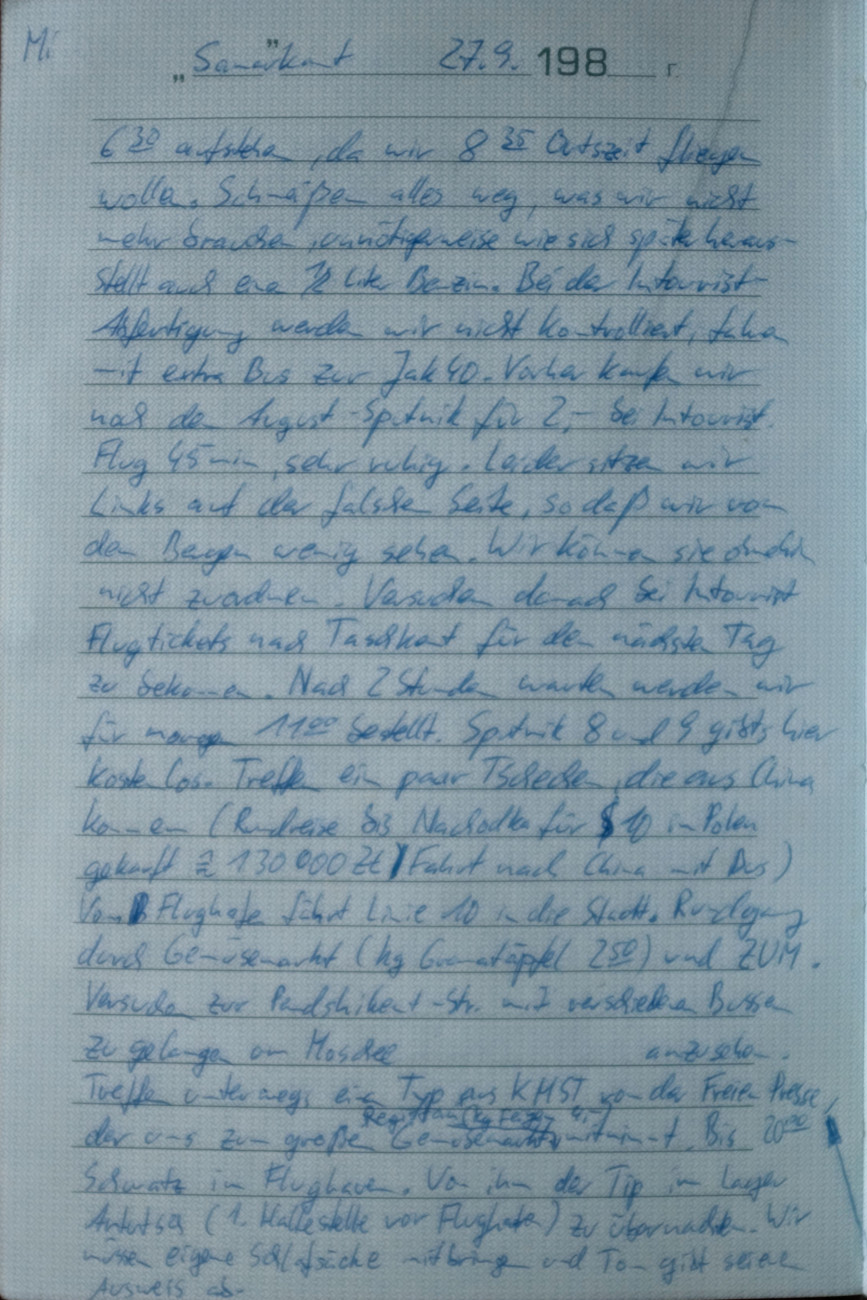 Mi
„Samarkant" 27.9. 198 г.
6 30 aufstehen, da wir 8 35 Ortszeit fliegen
wollen. Schmeißen alles weg, was wir nicht
mehr brauchen, unnötigerweise wie sich später heraus-
stellt auch einen 1/2 Liter Benzin. Bei der Intourist-
Abfertigung werden wir nicht kontrolliert, fahren
mit extra Bus zur Jak 40. Vorher kaufen wir
noch den August-Sputnik für 2,- bei Intourist.
Flug 45 min, sehr ruhig. Leider sitzen wir
Links auf der falschen Seite, so daß wir von
den Bergen wenig sehen. Wir können sie ohnehin
nicht zuordnen. Versuchen danach bei Intourist
Flugtickets nach Taschkent für den nächsten Tag
zu bekommen. Nach 2 Stunden warten werden wir
für morgen 11 00 bestellt. Sputnik 8 und 9 gibts hier
kostenlos. Treffen ein paar Tschechen, die aus China
kommen (Rundreise bis Nachodka für $ 10 in Polen
gekauft ≙ 130 000 Zt Fahrt nach China mit Bus)
Vom Flughafen fährt Linie 10 in die Stadt. Rundgang
durch Gemüsemarkt (kg Granatäpfel 2 50) und ZUM.
Versuchen zur Pendshikent-Str. mit verschiedenen Bussen
zu gelangen um Moschee anzusehen.
Treffen unterwegs einen Typ aus KMST von der Freien Presse,
der uns zum großen Gemüsemarkt mitnimmt. Bis 20 00
Schwatz im Flughaven. Von ihm der Tip im Lager
(1. Haltestelle vor Flughafen) zu übernachten. Wir
müssen eigene Schlafsäcke mitbringen und Tom gibt seinen
Ausweis ab.